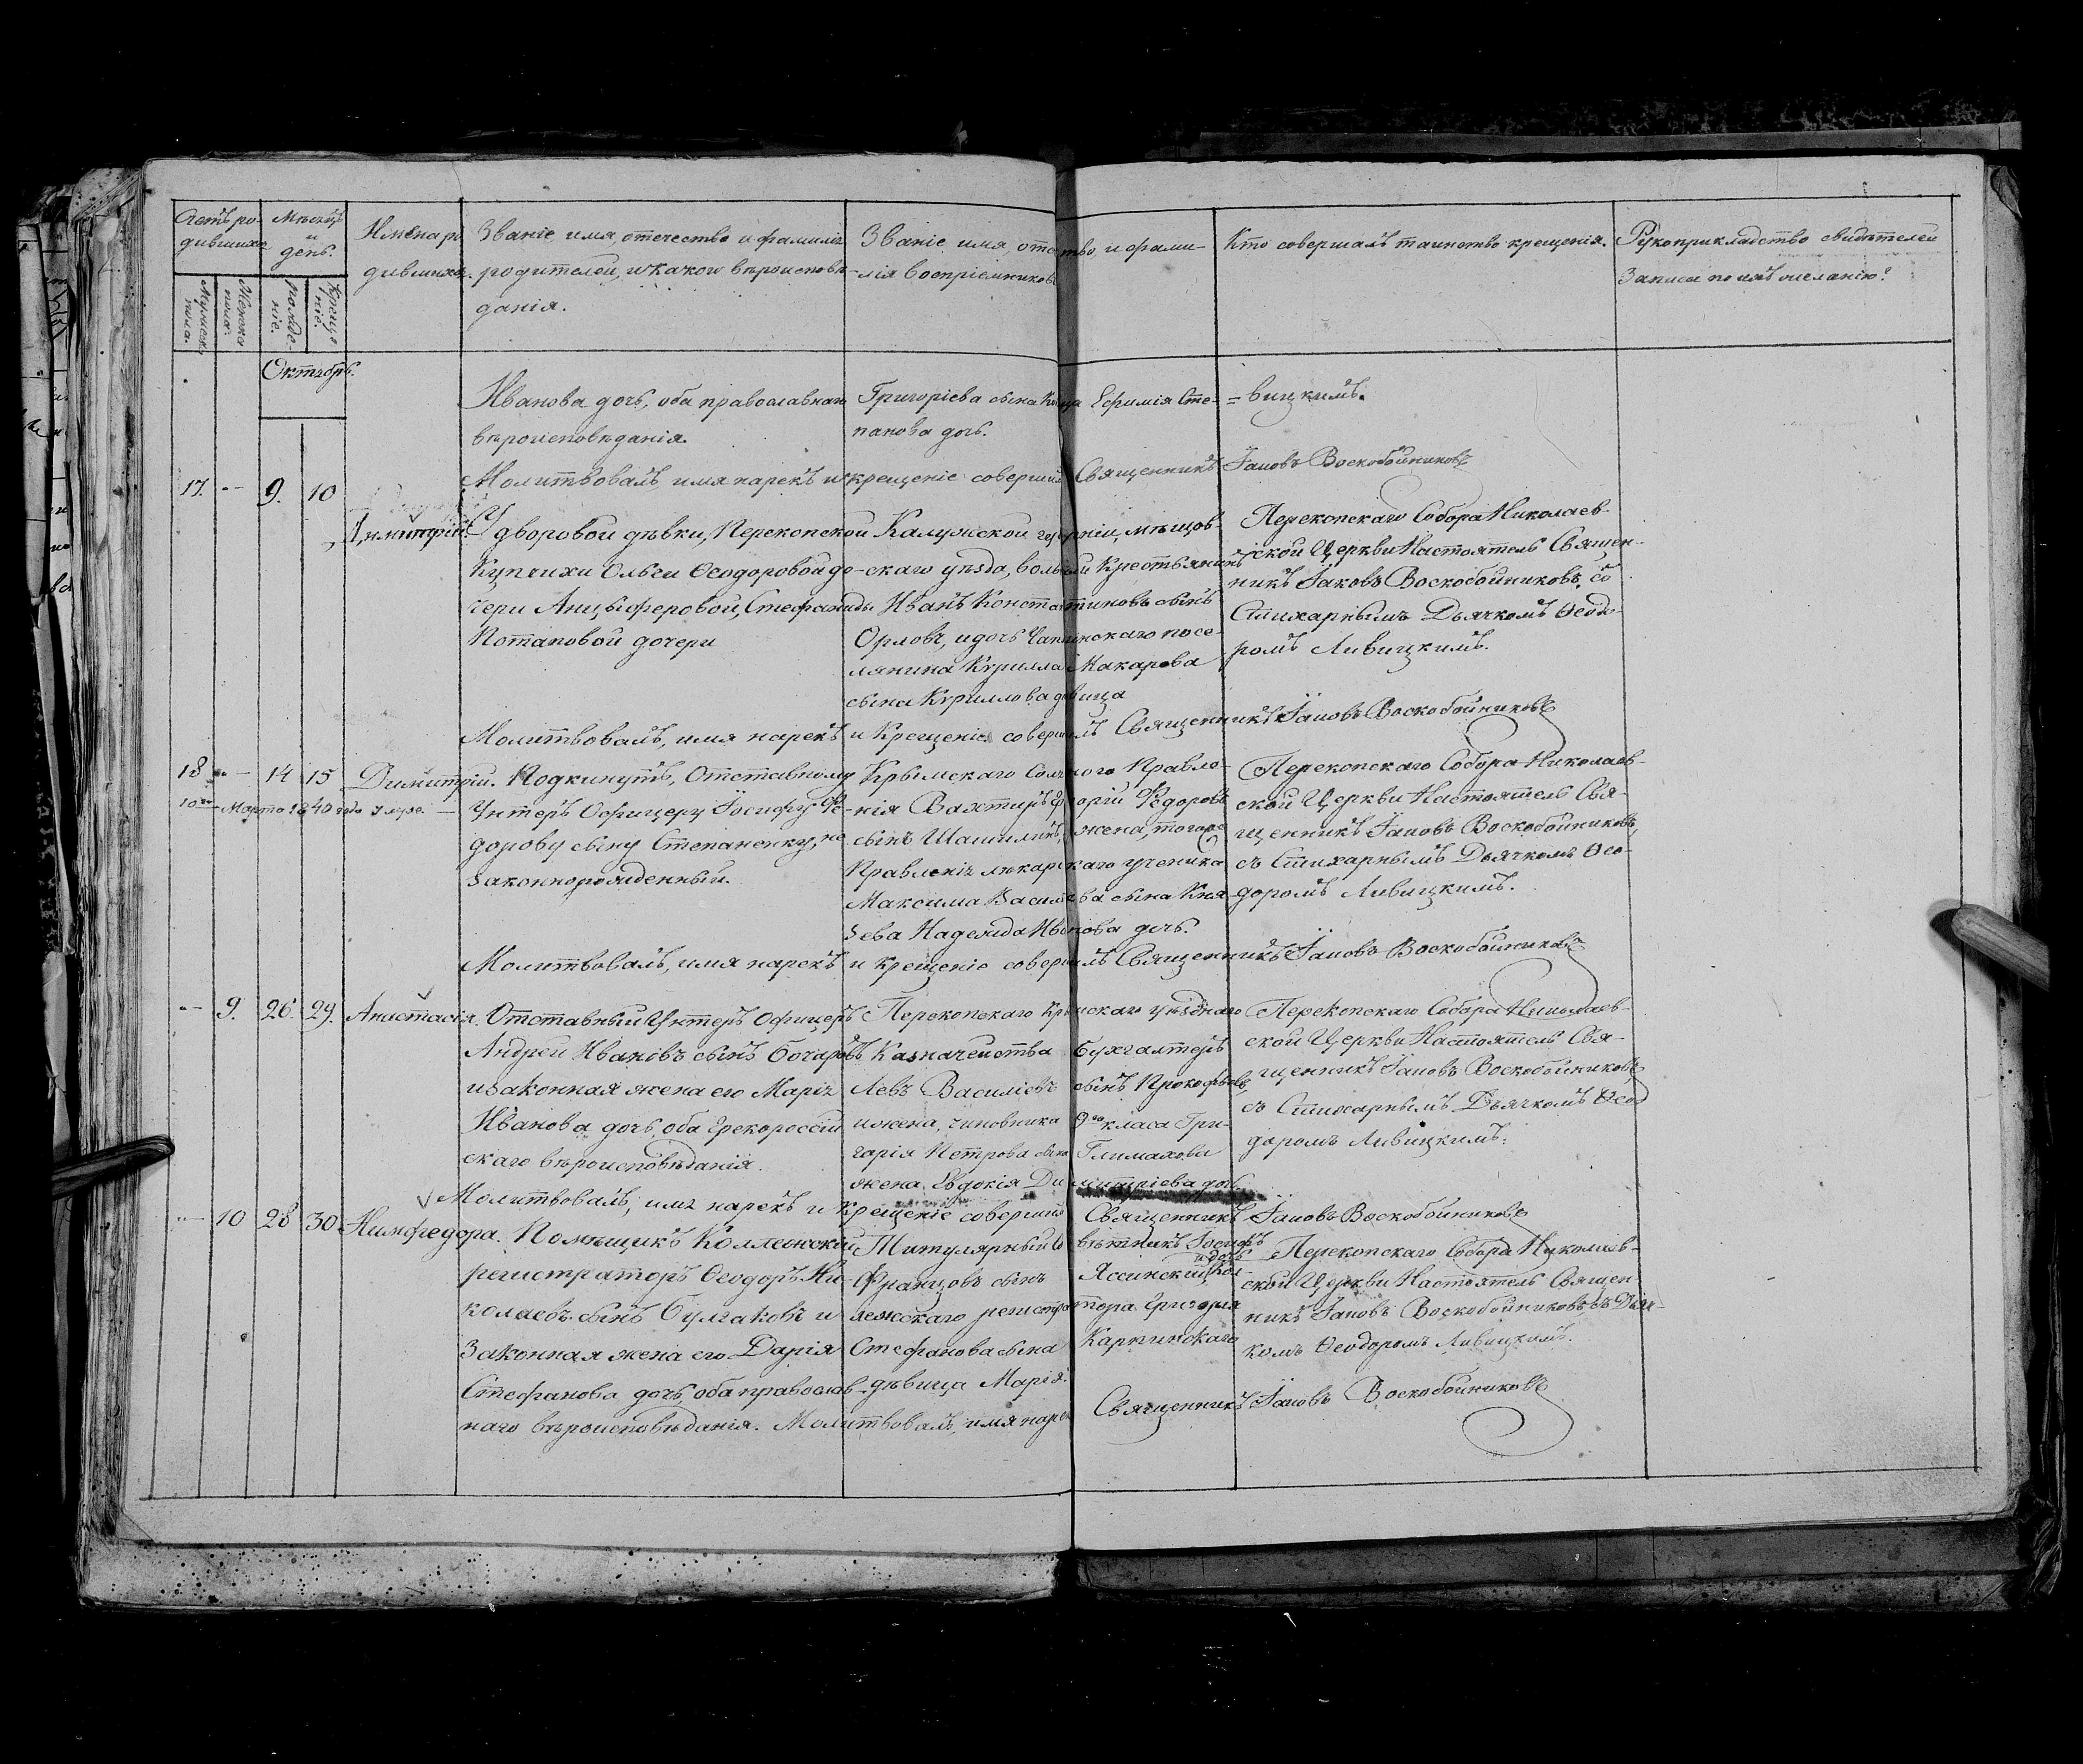 Счетъ ро-
дившихся
Мѣсяцъ
и
день.
Имена ро
дившихся.
Званіе имя, отечество и фамилія
родителей, и какого вѣроисповѣ-
данія.
Званіе имя, отечество и фами-
лія воспріемниковъ
Кто совершалъ таинство крещенія.
Рукоприкладство свидѣтелей
Записи по ихъ желанію?
Мужеска
пола.
Женска
пола.
Рожде-
ніе.
Креще-
ніе.
Октябрь.
Иванова дочь, оба православнаго
вѣроисповѣданія.
Григоріева сына Ефимія Сте-
панова дочь.
= вицкимъ.
Молитвовалъ, имя нарекъ и крещеніе совершилъ Священникъ Іаковъ Воскобойниковъ
17. — 9. 10
Димитрій.
У дворовой дѣвки, Перекопской
Купчихи Ольги Ѳеодоровой до-
чери Анцыферовой, Стефаниды
Потаповой дочери
Калужской губерніи, мѣщов-
скаго уѣзда, вольный Крестьянинъ
Иванъ Константиновъ сынъ
Орловъ, и дочь Чаплинскаго посе-
лянина Курилла Макарова
сына Куриллова девица
Перекопскаго Собора Николаев-
ской Церкви Настоятель Священ-
никъ Іаковъ Воскобойниковъ, со
Стихарнымъ Дьячкомъ Ѳеодо-
ромъ Ливицкимъ.
Молитвовалъ, имя нарекъ и Крещеніе совершилъ Священникъ Іаковъ Воскобойниковъ
18 — 14 15 Димитрій.
10го Марта 1840 года умре. —
Подкинутъ, Отставному
Унтеръ Офицеру Іосифу Ѳе-
дорову сыну Степаненку, не
законнорожденный.
Крымскаго Солянаго Правле-
нія Вахтиръ Георгій Федоровъ
сынъ Шашилинъ, жена, тогоже
Правленія лекарскаго ученика
Максима Васильева сына Кня-
зева Надежда Иванова дочь.
Перекопскаго Собора Николаев-
ской Церкви Настоятель Свя-
щенникъ Іаковъ Воскобойниковъ,
съ Стихарнымъ Дьячкомъ Ѳео-
доромъ Ливицкимъ.
Молитвовалъ, имя нарекъ и крещеніе совершилъ Священникъ Іаковъ Воскобойниковъ
— 9. 26. 29. Анастасія.
Отставный Унтеръ Офицеръ
Андрей Ивановъ сынъ Бочаровъ
и законная жена его Марія
Иванова дочь, оба Грекороссій
скаго вѣроисповѣданія.
Перекопскаго Крымскаго уѣзднаго
Казначейства Бухгалтеръ
Левъ Василіевъ сынъ Прокофьевъ,
и жена, чиновника 9го класа Гри-
горія Петрова сына Глимахова
жена Евдокія Димитріева дочь.
Перекопскаго Собора Николаев-
ской Церкви Настоятель Свя-
щенникъ Іаковъ Воскобойниковъ,
съ Стихарнымъ Дьячкомъ Ѳео
доромъ Ливицкимъ.
Молитвовалъ, имя нарекъ и крещеніе совершилъ Священникъ Іаковъ Воскобойниковъ
— 10 28 30 Нимфедора.
Помѣщикъ Коллежскій
регистраторъ Ѳеодоръ Ни-
колаевъ сынъ Булгаковъ и
Законная жена его Дарія
Стефанова дочь, оба православ-
наго вѣроисповѣданія. Молитвовалъ, имя нарек
Титулярный Совѣтникъ Іосифъ
Францовъ сынъ Яссинский и дочь Кол-
лежскаго регистратора Григорія
Стефанова сына Карпинскаго
дѣвица Марія.
Перекопскаго Собора Николаев-
ской Церкви Настоятель Священ
никъ Іаковъ Воскобойниковъ съ Дьяч-
комъ Ѳеодоромъ Ливицкимъ.
Священникъ Іаковъ Воскобойниковъ